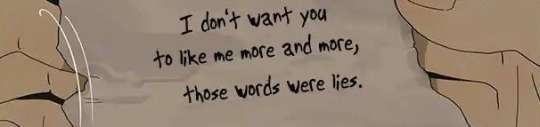 I don't want you
to like me more and more,
those words were lies.